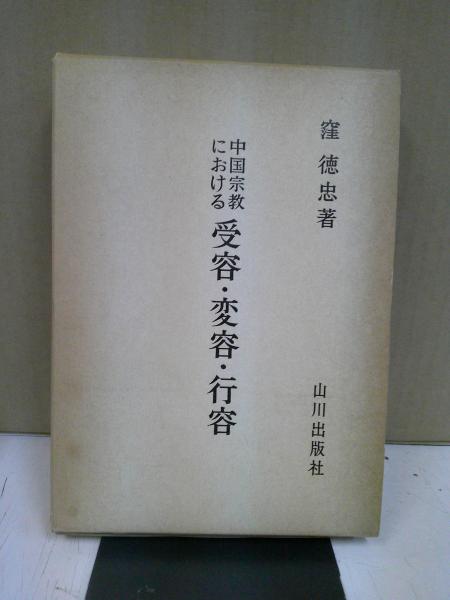 窪 徳忠著
中国宗教
における
受容・変容・行容
山川出版社